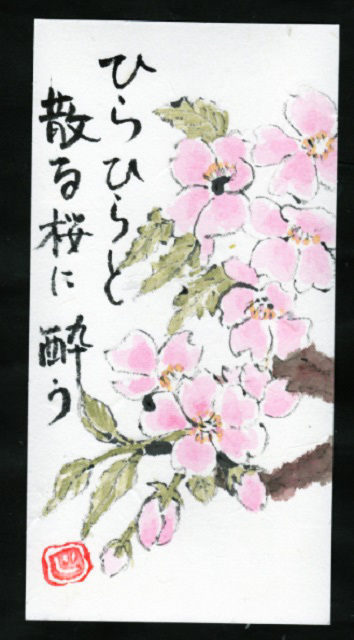 ひらひらと
散る桜に 酔う